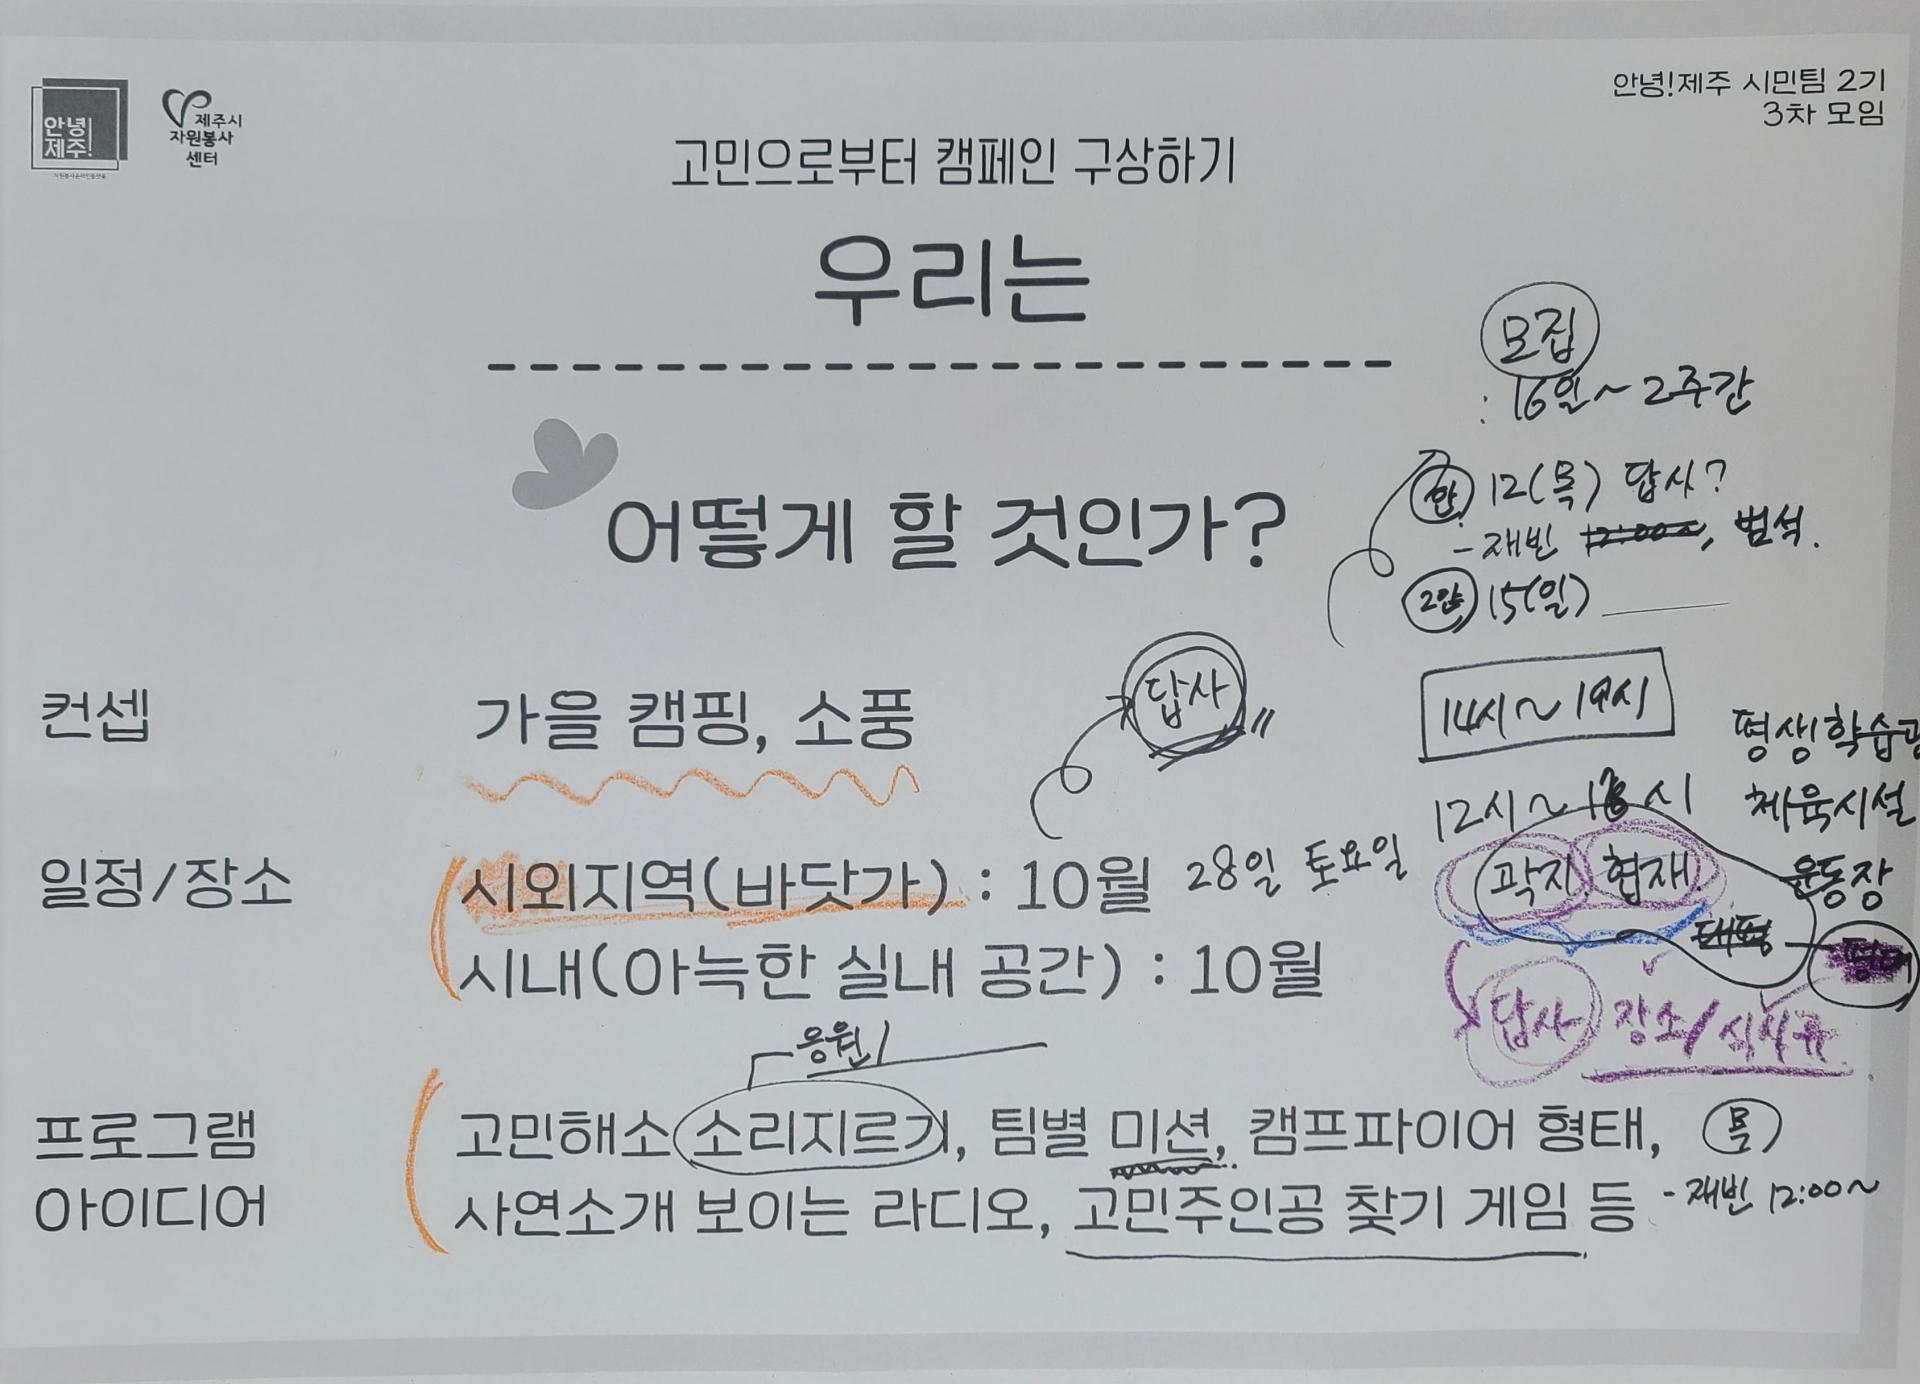 안녕!제주 시민팀 2기
3차 모임
안녕
제주!
제주시
자원봉사
센터
고민으로부터 캠페인 구상하기
우리는
모집
: 16일~2주간
어떻게 할 것인가?
12(목) 답사?
-재빈 범석.
2안 15(일)
컨셉 가을 캠핑, 소풍
답사
14시~19시
12시~18시
평생학습관
체육시설
운동장
일정/장소 시외지역(바닷가) : 10월 28일 토요일
곽지, 협재
태평
시내(아늑한 실내 공간) : 10월
답사 장소/식사류
응원
프로그램 고민해소 소리지르기, 팀별 미션, 캠프파이어 형태, 목
아이디어 사연소개 보이는 라디오, 고민주인공 찾기 게임 등 -재빈 12:00~